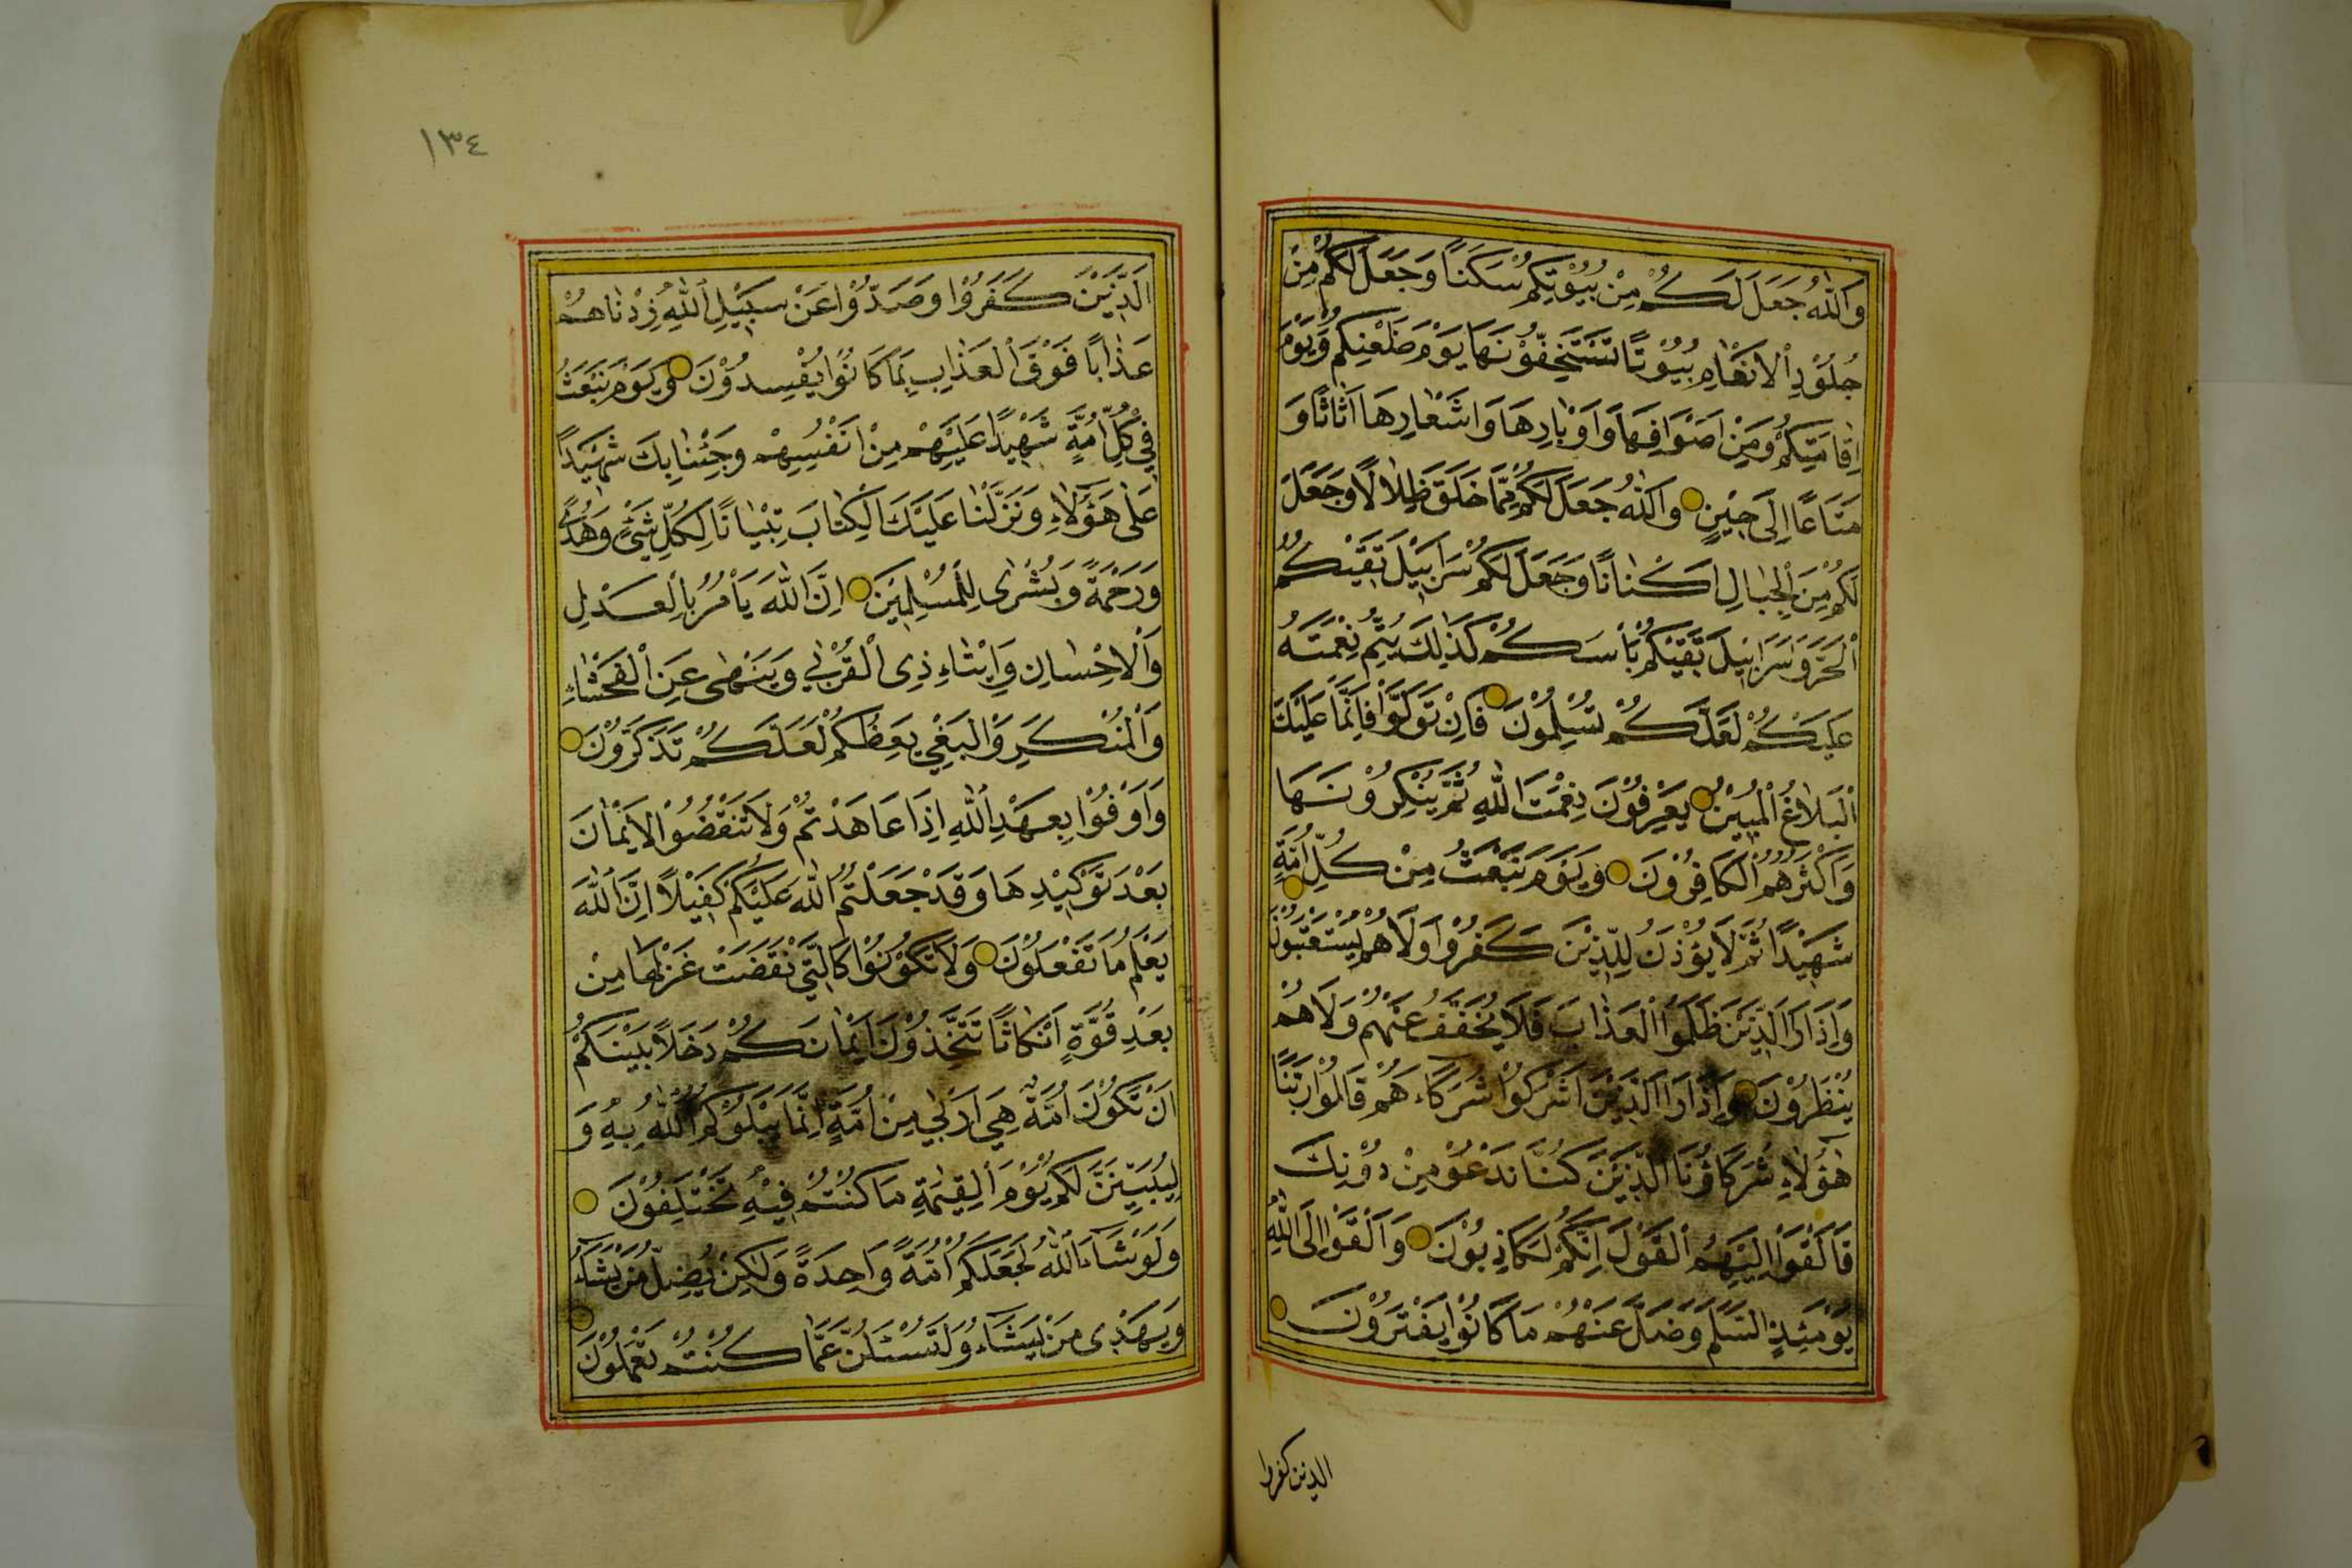 وَاللّٰهُ جَعَلَ لَكُمْ مِنْ بُيُوْتِكُمْ سَكَنًا وَجَعَلَ لَكُمْ مِنْ
جُلُوْدِ الْاَنْعَامِ بُيُوْتًا تَسْتَخِفُّوْنَهَا يَوْمَ ظَعْنِكُمْ وَيَوْمَ
اِقَامَتِكُمْ وَمِنْ اَصْوَافِهَا وَاَوْبَارِهَا وَاَشْعَارِهَا اَثَاثًا وَ
مَتَاعًا اِلٰى حِيْنٍ وَاللّٰهُ جَعَلَ لَكُمْ مِمَّا خَلَقَ ظِلَالًا وَجَعَلَ
لَكُمْ مِنَ الْجِبَالِ اَكْنَانًا وَجَعَلَ لَكُمْ سَرَابِيْلَ تَقِيْكُمُ
الْحَرَّ وَسَرَابِيْلَ تَقِيْكُمْ بَأْسَكُمْ كَذٰلِكَ يُتِمُّ نِعْمَتَهُ
عَلَيْكُمْ لَعَلَّكُمْ تُسْلِمُوْنَ فَاِنْ تَوَلَّوْا فَاِنَّمَا عَلَيْكَ
الْبَلَاغُ الْمُبِيْنُ يَعْرِفُوْنَ نِعْمَتَ اللّٰهِ ثُمَّ يُنْكِرُوْنَهَا
وَاَكْثَرُهُمُ الْكَافِرُوْنَ وَيَوْمَ نَبْعَثُ مِنْ كُلِّ اُمَّةٍ
شَهِيْدًا ثُمَّ لَا يُؤْذَنُ لِلَّذِيْنَ كَفَرُوْا وَلَا هُمْ يُسْتَعْتَبُوْنَ
وَاِذَا رَاَ الَّذِيْنَ ظَلَمُوا الْعَذَابَ فَلَا يُخَفَّفُ عَنْهُمْ وَلَا هُمْ
يُنْظَرُوْنَ وَاِذَا رَاَ الَّذِيْنَ اَشْرَكُوْا شُرَكَاءَهُمْ قَالُوْا رَبَّنَا
هٰؤُلَاءِ شُرَكَاؤُنَا الَّذِيْنَ كُنَّا نَدْعُوْ مِنْ دُوْنِكَ
فَاَلْقَوْا اِلَيْهِمُ الْقَوْلَ اِنَّكُمْ لَكَاذِبُوْنَ وَاَلْقَوْا اِلَى اللّٰهِ
يَوْمَئِذٍ السَّلَمَ وَضَلَّ عَنْهُمْ مَا كَانُوْا يَفْتَرُوْنَ
الذين كفروا
١٣٤
اَلَّذِيْنَ كَفَرُوْا وَصَدُّوْا عَنْ سَبِيْلِ اللّٰهِ زِدْنَاهُمْ
عَذَابًا فَوْقَ الْعَذَابِ بِمَا كَانُوْا يُفْسِدُوْنَ وَيَوْمَ نَبْعَثُ
فِي كُلِّ اُمَّةٍ شَهِيْدًا عَلَيْهِمْ مِنْ اَنْفُسِهِمْ وَجِئْنَا بِكَ شَهِيْدًا
عَلٰى هٰؤُلَاءِ وَنَزَّلْنَا عَلَيْكَ الْكِتَابَ تِبْيَانًا لِكُلِّ شَيْءٍ وَهُدًى
وَرَحْمَةً وَبُشْرٰى لِلْمُسْلِمِيْنَ اِنَّ اللّٰهَ يَأْمُرُ بِالْعَدْلِ
وَالْاِحْسَانِ وَاِيْتَاءِ ذِى الْقُرْبٰى وَيَنْهٰى عَنِ الْفَحْشَاءِ
وَالْمُنْكَرِ وَالْبَغْيِ يَعِظُكُمْ لَعَلَّكُمْ تَذَكَّرُوْنَ
وَاَوْفُوْا بِعَهْدِ اللّٰهِ اِذَا عَاهَدْتُمْ وَلَا تَنْقُضُوا الْاَيْمَانَ
بَعْدَ تَوْكِيْدِهَا وَقَدْ جَعَلْتُمُ اللّٰهَ عَلَيْكُمْ كَفِيْلًا اِنَّ اللّٰهَ
يَعْلَمُ مَا تَفْعَلُوْنَ وَلَا تَكُوْنُوْا كَالَّتِيْ نَقَضَتْ غَزْلَهَا مِنْ
بَعْدِ قُوَّةٍ اَنْكَاثًا تَتَّخِذُوْنَ اَيْمَانَكُمْ دَخَلًا بَيْنَكُمْ
اَنْ تَكُوْنَ اُمَّةٌ هِيَ اَرْبٰى مِنْ اُمَّةٍ اِنَّمَا يَبْلُوْكُمُ اللّٰهُ بِهِ وَ
لَيُبَيِّنَنَّ لَكُمْ يَوْمَ الْقِيٰمَةِ مَا كُنْتُمْ فِيْهِ تَخْتَلِفُوْنَ
وَلَوْ شَاءَ اللّٰهُ لَجَعَلَكُمْ اُمَّةً وَاحِدَةً وَلٰكِنْ يُضِلُّ مَنْ يَشَاءُ
وَيَهْدِى مَنْ يَشَاءُ وَلَتُسْئَلُنَّ عَمَّا كُنْتُمْ تَعْمَلُوْنَ